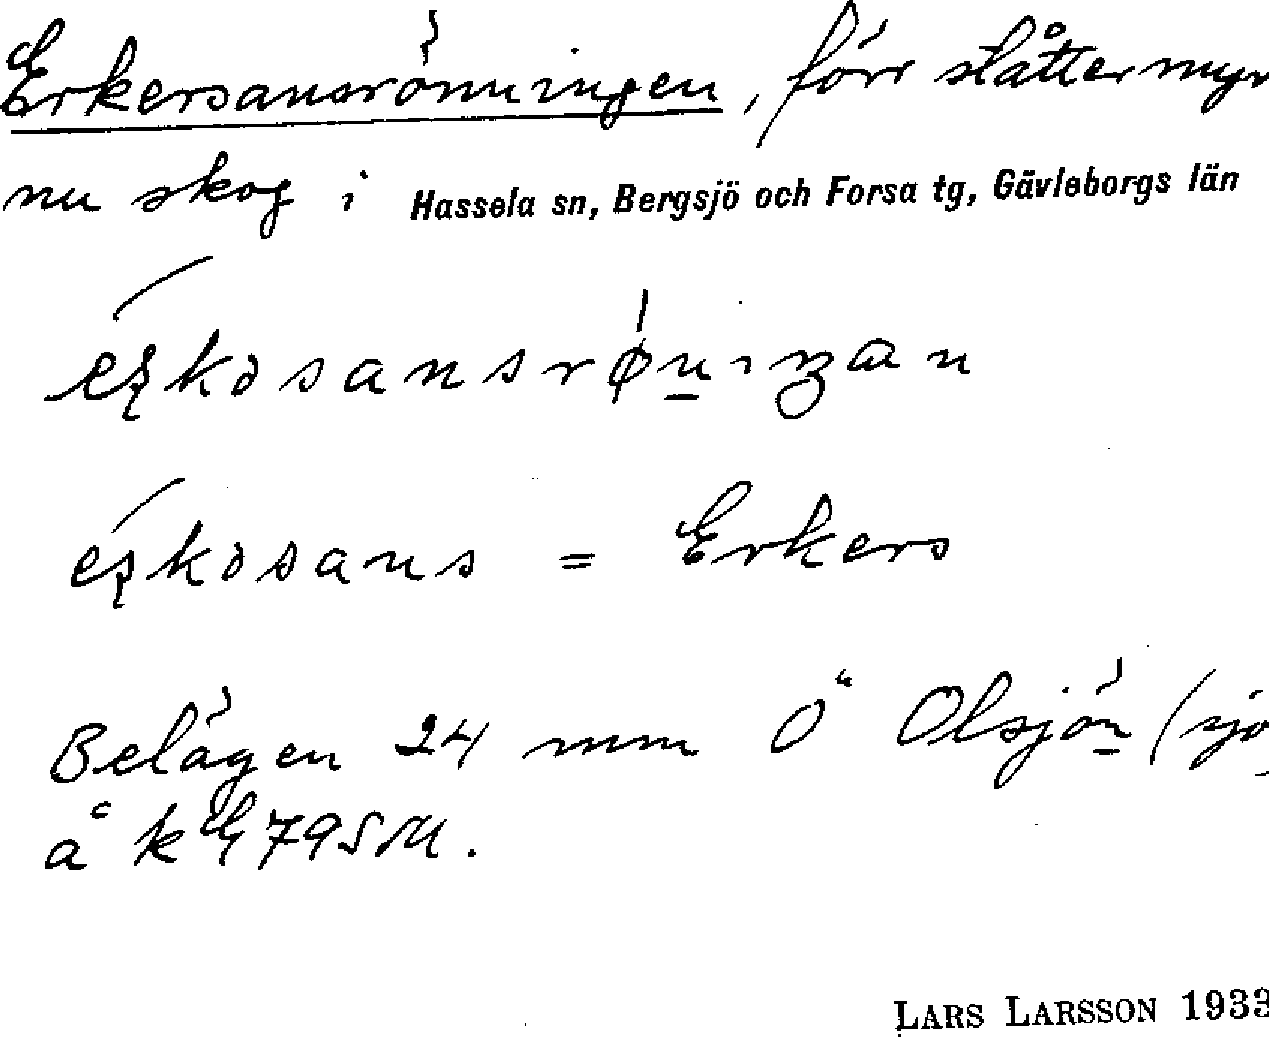 Erkersansrönningen, förr slåttermyr
nu skog i Hassela sn, Bergsjö och Forsa tg, Gävleborgs län
erkəsansrøniŋan
erkəsans = Erkers
Belägen 24 mm Ö Olsjön (sjö
å k 79SM.
LARS LARSSON 1933